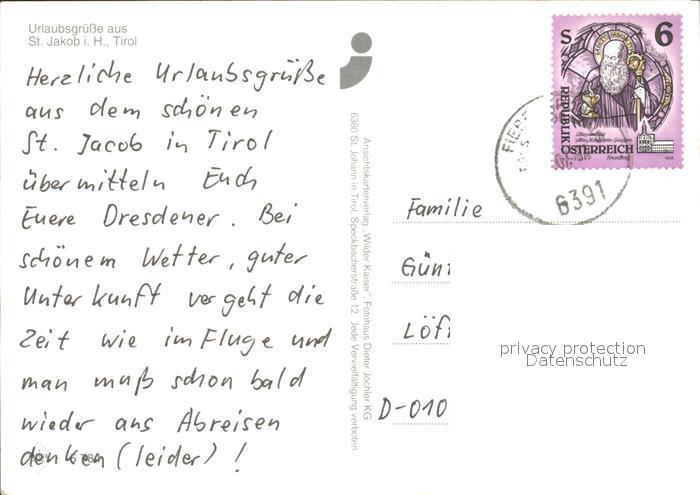 Urlaubsgrüße aus
St. Jakob i. H., Tirol
Herzliche Urlaubsgrüße
aus dem schönen
St. Jacob in Tirol
übermitteln Euch
Euere Dresdener. Bei
schönem Wetter, guter
Unterkunft vergeht die
Zeit wie im Fluge und
man muß schon bald
wieder ans Abreisen
denken (leider)!
Ansichtskartenverlag „Wilder Kaiser“, Fotohaus Dieter Jöchler KG
6380 St. Johann in Tirol, Speckbacherstraße 12. Jede Vervielfältigung verboten
S 6
REPUBLIK
ÖSTERREICH
6391
Familie
Günt
Löff
D-010
privacy protection
Datenschutz